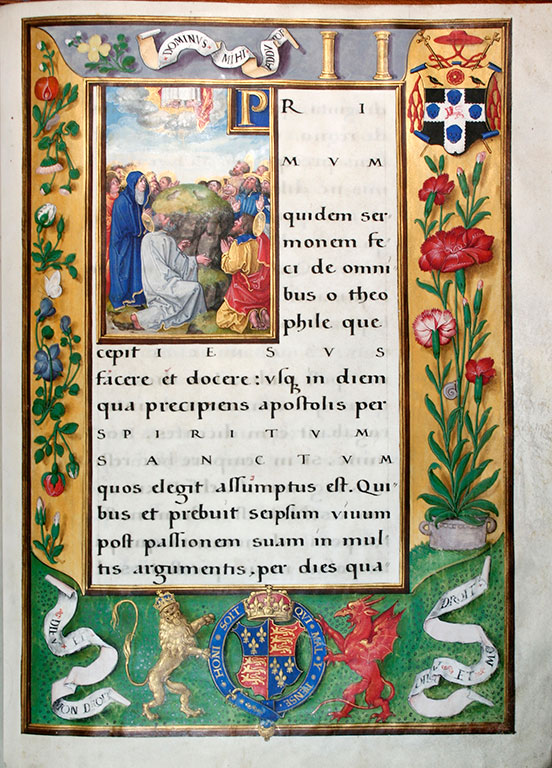 DOMINVS MIHI ADIVTOR
P R I
M V M
quidem ser
monem fe
ci de omni
bus o theo
phile que
cepit I E S V S
facere et docere: vsqꝫ in diem
qua precipiens apostolis per
S P I R I T V M
S A N C T V M
quos elegit assumptus est. Qui
bus et prebuit seipsum viuum
post passionem suam in mul
tis argumentis, per dies qua
DIEV ET
MON DROIT
HONI SOIT QVI MAL Y PENSE
DROIT
DIEV ET